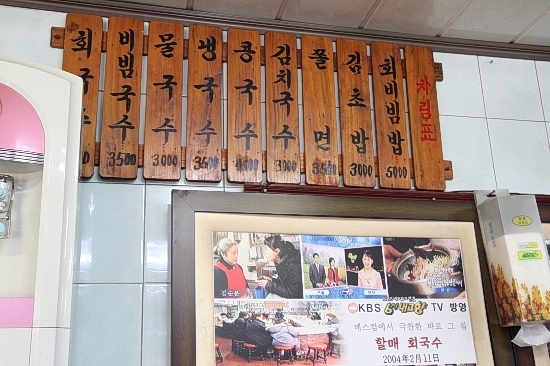 차림표
회비빔밥 5000
김초밥 3000
쫄면 3500
김치국수
콩국수 4000
냉국수 3500
물국수 3000
비빔국수 3500
회국수
KBS 6시 내고향 TV 방영
메스컴에서 극찬한 바로 그 집
할매 회국수
2004년 2월11일